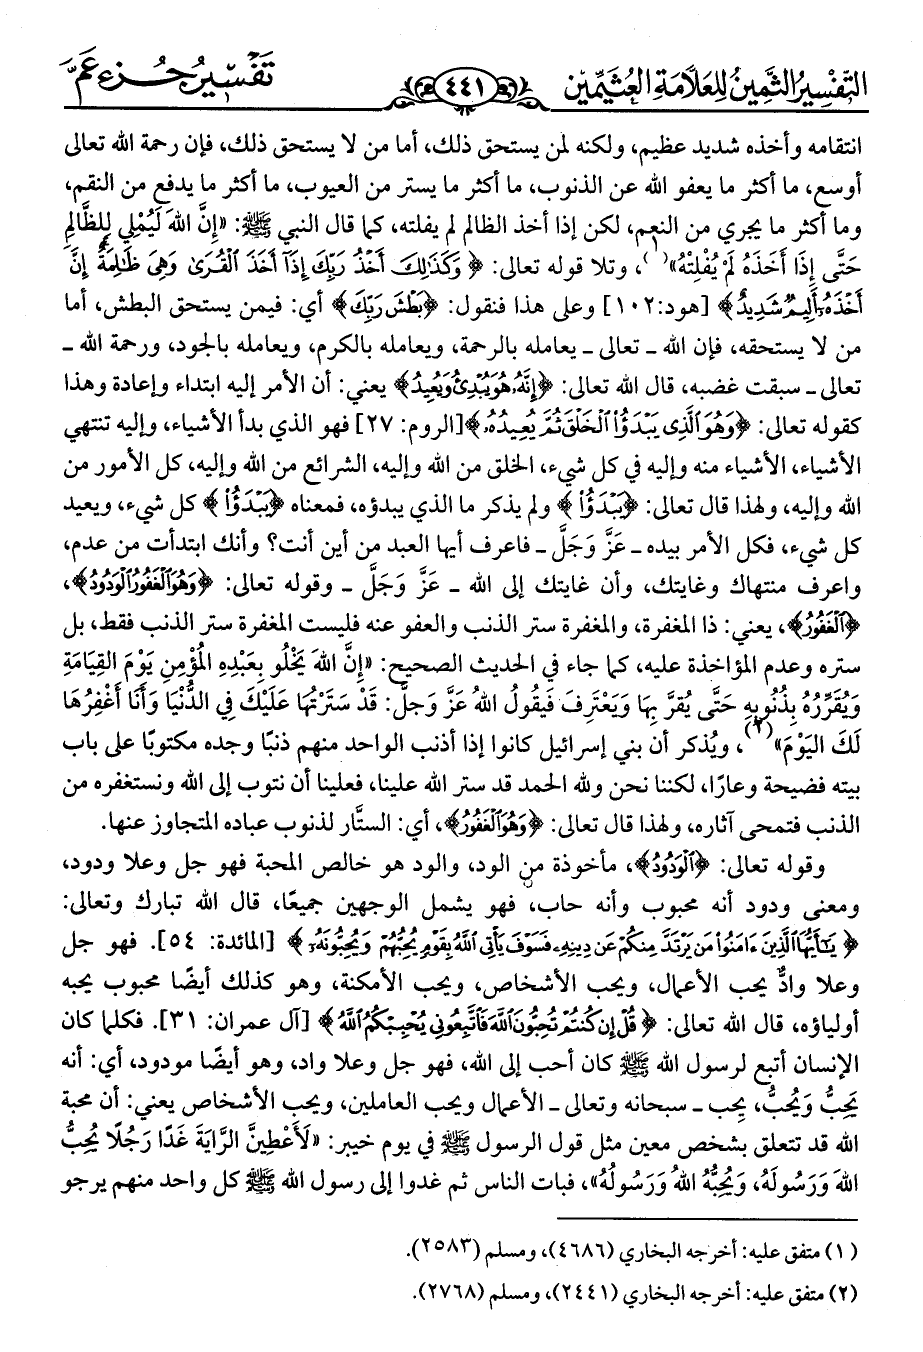 التفسير الثمين للعلامة العثيمين ٤٤١ تفسير جزء عم
انتقامه وأخذه شديد عظيم، ولكنه لمن يستحق ذلك، أما من لا يستحق ذلك، فإن رحمة الله تعالى
أوسع، ما أكثر ما يعفو الله عن الذنوب، ما أكثر ما يستر من العيوب، ما أكثر ما يدفع من النقم،
وما أكثر ما يجري من النعم، لكن إذا أخذ الظالم لم يفلته، كما قال النبي ﷺ: «إِنَّ اللهَ لَيُمْلِي لِلظَّالِمِ
حَتَّى إِذَا أَخَذَهُ لَمْ يُفْلِتْهُ»(١)، وتلا قوله تعالى: ﴿ وَكَذَٰلِكَ أَخْذُ رَبِّكَ إِذَآ أَخَذَ ٱلْقُرَىٰ وَهِىَ ظَٰلِمَةٌ إِنَّ
أَخْذَهُۥٓ أَلِيمٌ شَدِيدٌ ﴾ [هود:١٠٢] وعلى هذا فنقول: ﴿بَطْشَ رَبِّكَ ﴾ أي: فيمن يستحق البطش، أما
من لا يستحقه، فإن الله ـ تعالى ـ يعامله بالرحمة، ويعامله بالكرم، ويعامله بالجود، ورحمة الله ـ
تعالى ـ سبقت غضبه، قال الله تعالى: ﴿إِنَّهُۥ هُوَ يُبْدِئُ وَيُعِيدُ ﴾ يعني: أن الأمر إليه ابتداء وإعادة وهذا
كقوله تعالى: ﴿وَهُوَ ٱلَّذِى يَبْدَؤُا۟ ٱلْخَلْقَ ثُمَّ يُعِيدُهُۥ ﴾[الروم: ٢٧] فهو الذي بدأ الأشياء، وإليه تنتهي
الأشياء، الأشياء منه وإليه في كل شيء، الخلق من الله وإليه، الشرائع من الله وإليه، كل الأمور من
الله وإليه، ولهذا قال تعالى: ﴿يَبْدَؤُا۟ ﴾ ولم يذكر ما الذي يبدؤه، فمعناه ﴿يَبْدَؤُا۟ ﴾ كل شيء، ويعيد
كل شيء، فكل الأمر بيده ـ عَزَّ وَجَلَّ ـ فاعرف أيها العبد من أين أنت؟ وأنك ابتدأت من عدم،
واعرف منتهاك وغايتك، وأن غايتك إلى الله ـ عَزَّ وَجَلَّ ـ وقوله تعالى: ﴿وَهُوَ ٱلْغَفُورُ ٱلْوَدُودُ﴾،
﴿ٱلْغَفُورُ﴾، يعني: ذا المغفرة، والمغفرة ستر الذنب والعفو عنه فليست المغفرة ستر الذنب فقط، بل
ستره وعدم المؤاخذة عليه، كما جاء في الحديث الصحيح: «إِنَّ اللهَ يَخْلُو بِعَبْدِهِ المُؤْمِنِ يَوْمَ القِيَامَةِ
وَيُقَرِّرُهُ بِذُنُوبِهِ حَتَّى يُقرَّ بِهَا وَيَعْتَرِفَ فَيَقُولُ اللهُ عَزَّ وَجَلَّ: قَدْ سَتَرْتُهَا عَلَيْكَ فِي الدُّنْيَا وَأَنَا أَغْفِرُهَا
لَكَ اليَوْمَ»(٢)، ويُذكر أن بني إسرائيل كانوا إذا أذنب الواحد منهم ذنبًا وجده مكتوبًا على باب
بيته فضيحة وعارًا، لكننا نحن ولله الحمد قد ستر الله علينا، فعلينا أن نتوب إلى الله ونستغفره من
الذنب فتمحى آثاره، ولهذا قال تعالى: ﴿وَهُوَ ٱلْغَفُورُ﴾، أي: الستَّار لذنوب عباده المتجاوز عنها.
وقوله تعالى: ﴿ٱلْوَدُودُ﴾، مأخوذة من الود، والود هو خالص المحبة فهو جل وعلا ودود،
ومعنى ودود أنه محبوب وأنه حاب، فهو يشمل الوجهين جميعًا، قال الله تبارك وتعالى:
﴿ يَٰٓأَيُّهَا ٱلَّذِينَ ءَامَنُوا۟ مَن يَرْتَدَّ مِنكُمْ عَن دِينِهِۦ فَسَوْفَ يَأْتِى ٱللَّهُ بِقَوْمٍ يُحِبُّهُمْ وَيُحِبُّونَهُۥٓ ﴾ [المائدة: ٥٤]. فهو جل
وعلا وادٌّ يحب الأعمال، ويحب الأشخاص، ويحب الأمكنة، وهو كذلك أيضًا محبوب يحبه
أولياؤه، قال الله تعالى: ﴿ قُلْ إِن كُنتُمْ تُحِبُّونَ ٱللَّهَ فَٱتَّبِعُونِى يُحْبِبْكُمُ ٱللَّهُ ﴾ [آل عمران: ٣١]. فكلما كان
الإنسان أتبع لرسول الله ﷺ كان أحب إلى الله، فهو جل وعلا واد، وهو أيضًا مودود، أي: أنه
يَحِبُّ وَيُحَبُّ، يحب ـ سبحانه وتعالى ـ الأعمال ويحب العاملين، ويحب الأشخاص يعني: أن محبة
الله قد تتعلق بشخص معين مثل قول الرسول ﷺ في يوم خيبر: «لَأُعْطِيَنَّ الرَّايَةَ غَدًا رَجُلًا يُحِبُّ
اللهَ وَرَسُولَهُ، وَيُحِبُّهُ اللهُ وَرَسُولُهُ»، فبات الناس ثم غدوا إلى رسول الله ﷺ كل واحد منهم يرجو
(١) متفق عليه: أخرجه البخاري (٤٦٨٦)، ومسلم (٢٥٨٣).
(٢) متفق عليه: أخرجه البخاري (٢٤٤١)، ومسلم (٢٧٦٨).